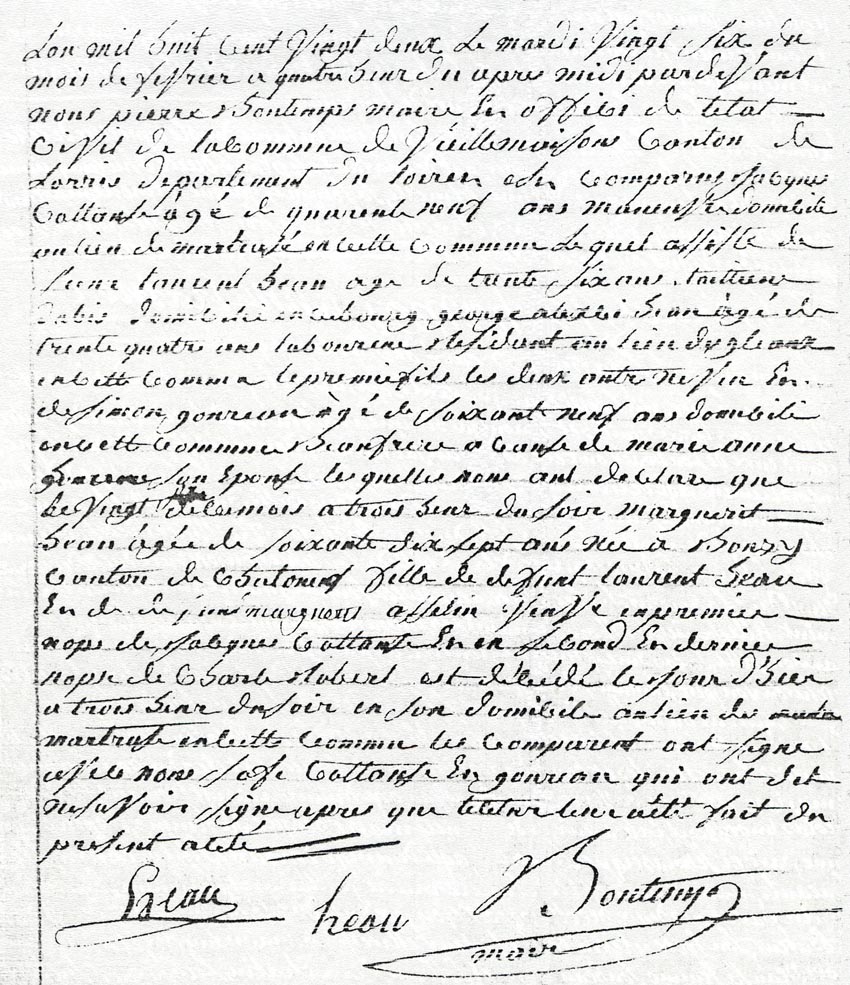 Lan mil huit Cent Vingt deux Le mardi Vingt Six du
mois de fevrier a quatre heur du apres midi par devant
nous pierre Bontemps maire En offici de letat
Civil de la Commune de Vieillemaisons Canton de
Lorris Departement du loiret
agé de quarente neuf ans domicilie
au lieu de en cette Commune Le quel assiste de
laurent heau age de trente Six ans
domicilié en le bourg george alexsi heau agé de
trente quatre ans laboureur residant au lieu
en cett Commun le premier fils les deux autre neveu En
de Simon goureau agé de Soixant neuf ans domicilié
en cett Commune Beaufrere a Cause de marie anne
Son Epouse lesquelles nous ont declare que
Le Vingt de ce mois a trois heur du Soir marguerit
heau agée de Soixante dix Sept ans née a Bouzy
Canton de fille de defunt laurent heau
En de asselin Veuve en premier
nopse de Jacques En en Second En dernier
nopse de Charle Robert est décédé le Jour d'hier
a trois heur du Soir en Son domicile au lieu de
en cett Commune les Comparent ont Signe
avec nous En goureau qui ont dit
ne Savoir Signe apres que lectur leur aété fait du
present acte
heau heau Bontemps
maire